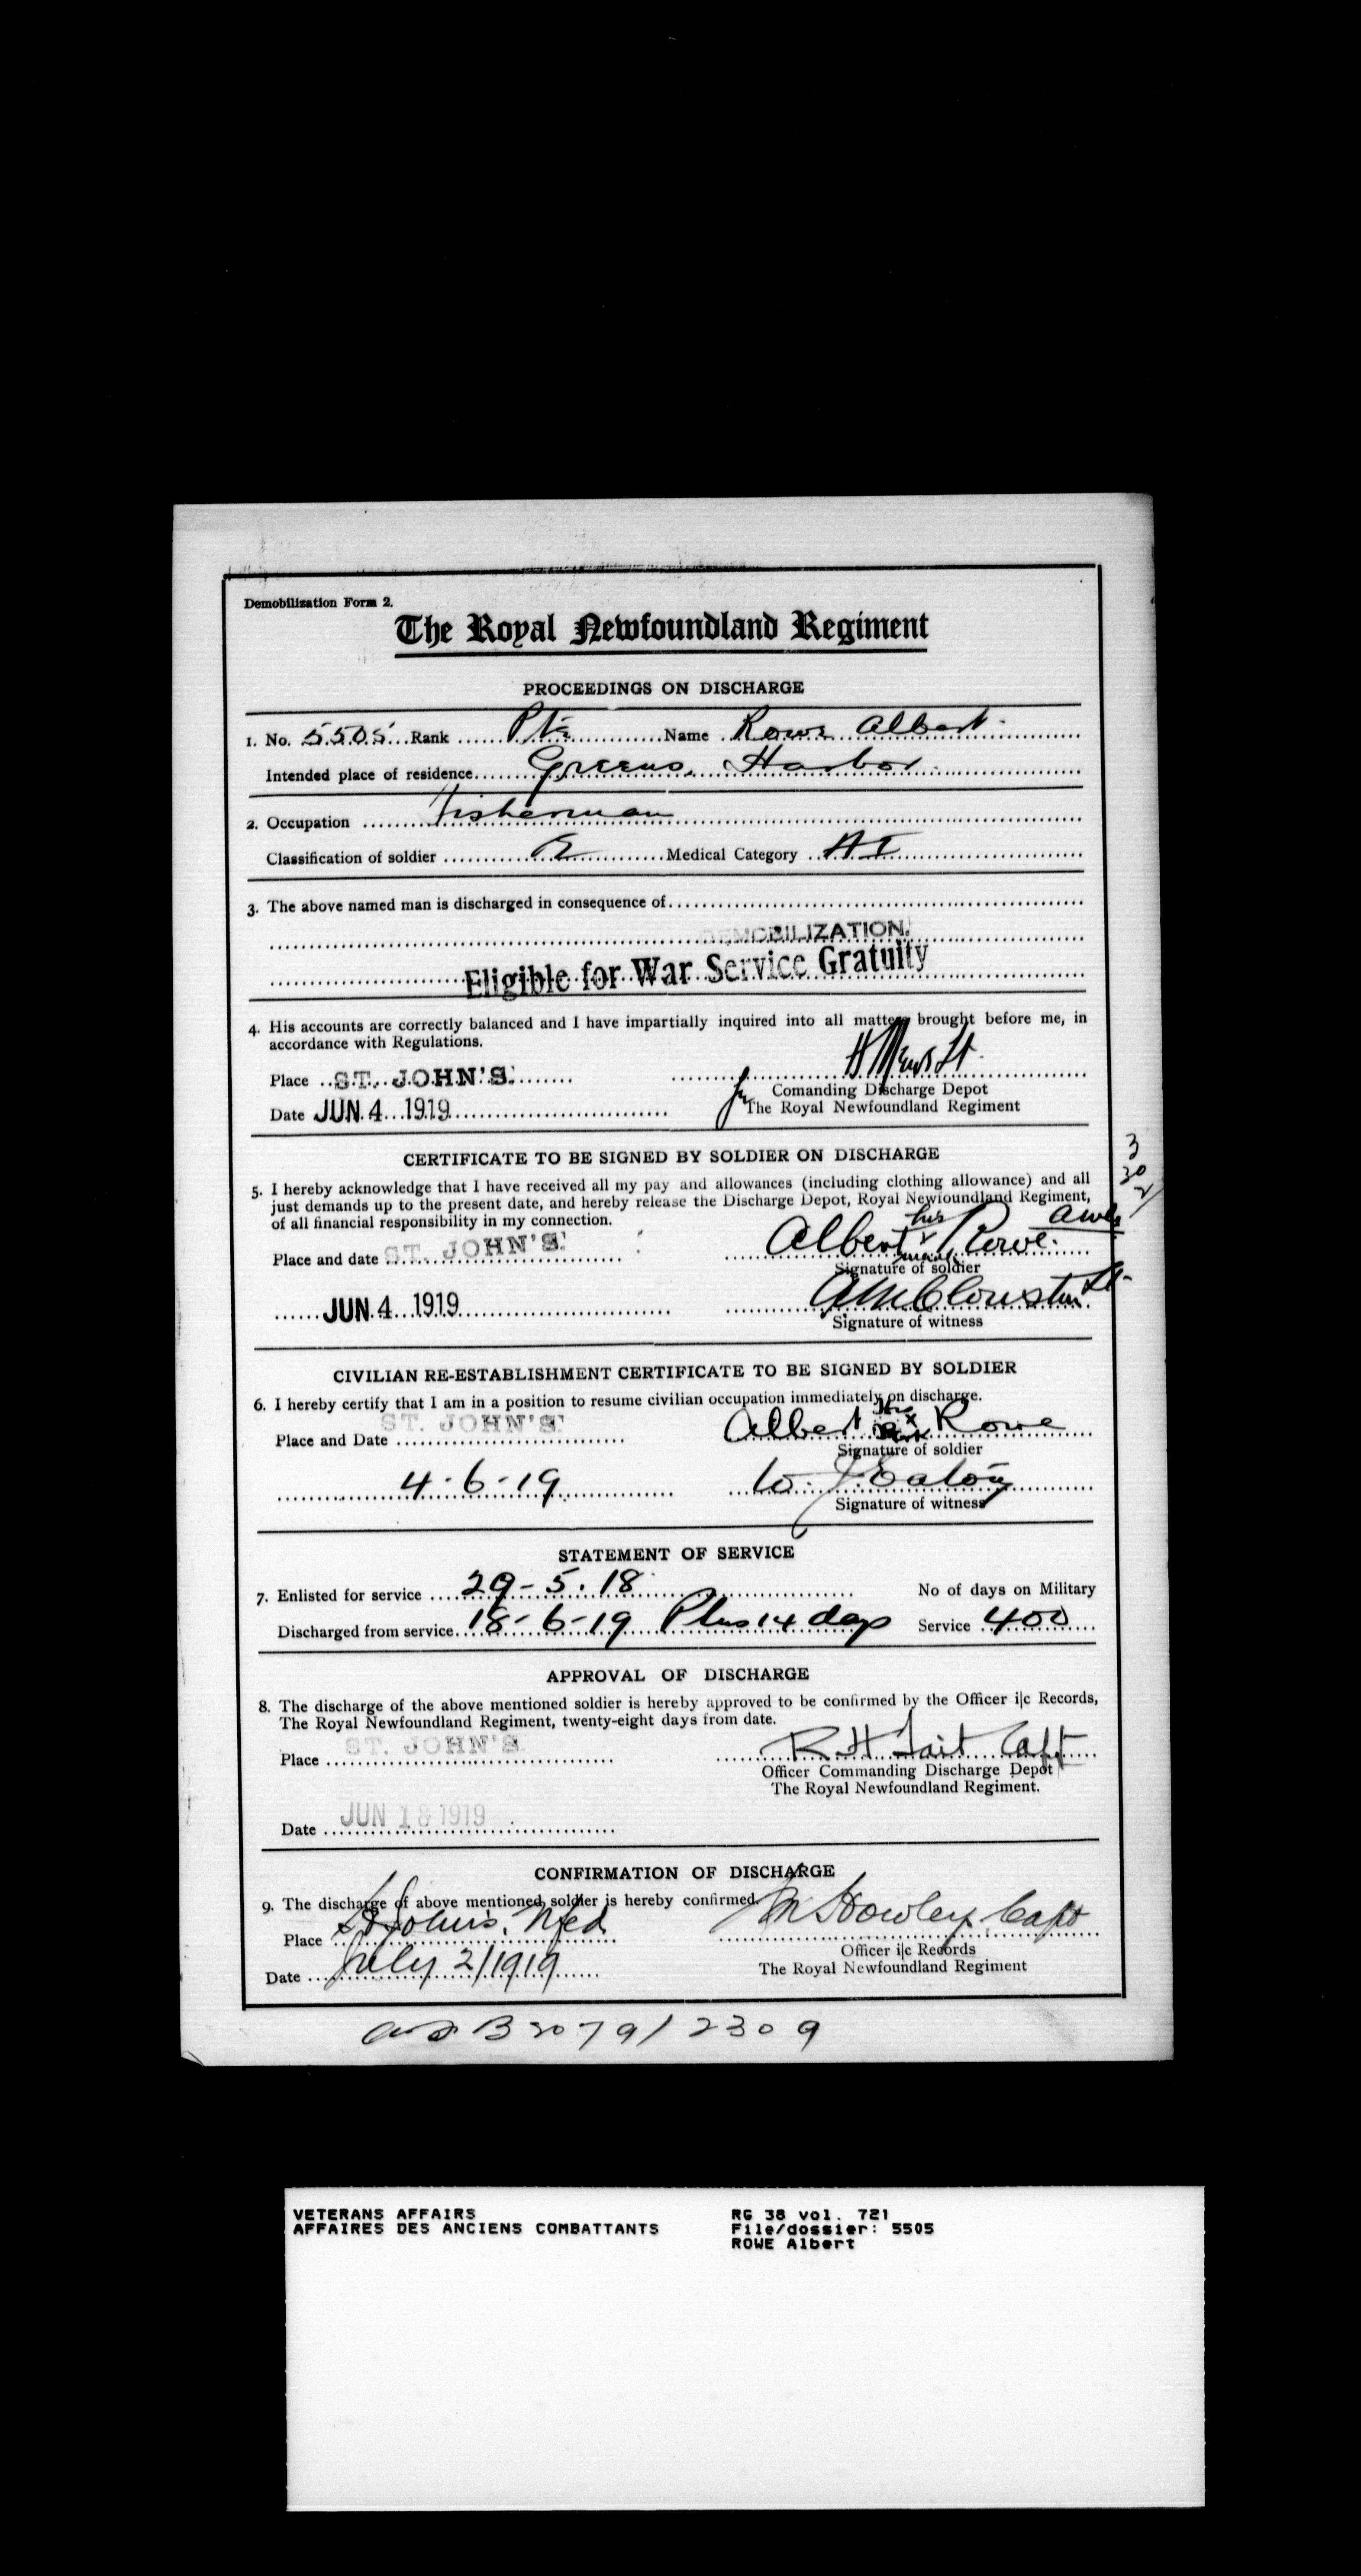 Demobilization Form 2.
The Royal Newfoundland Regiment
PROCEEDINGS ON DISCHARGE
1. No. 5505 Rank Pte Name Rowe Albert
Intended place of residence Greens Harbor
2. Occupation Fisherman
Classification of soldier Medical Category A1
3. The above named man is discharged in consequence of
DEMOBILIZATION.
Eligible for War Service Gratuity
4. His accounts are correctly balanced and I have impartially inquired into all matters brought before me, in
accordance with Regulations.
Place ST. JOHN'S.
Comanding Discharge Depot
Date JUN 4 1919 for The Royal Newfoundland Regiment
CERTIFICATE TO BE SIGNED BY SOLDIER ON DISCHARGE
5. I hereby acknowledge that I have received all my pay and allowances (including clothing allowance) and all
just demands up to the present date, and hereby release the Discharge Depot, Royal Newfoundland Regiment,
of all financial responsibility in my connection.
Place and date ST. JOHN'S. Albert his x mark Rowe.
Signature of soldier
JUN 4 1919 Clouston Lt.
Signature of witness
CIVILIAN RE-ESTABLISHMENT CERTIFICATE TO BE SIGNED BY SOLDIER
6. I hereby certify that I am in a position to resume civilian occupation immediately on discharge.
Place and Date ST. JOHN'S. Albert His x mark Rowe
Signature of soldier
4-6-19 W. J. Eaton
Signature of witness
STATEMENT OF SERVICE
7. Enlisted for service 29-5.18 No of days on Military
Discharged from service 18-6-19 Plus 14 days Service 400
APPROVAL OF DISCHARGE
8. The discharge of the above mentioned soldier is hereby approved to be confirmed by the Officer i|c Records,
The Royal Newfoundland Regiment, twenty-eight days from date.
Place ST. JOHN'S R H Tait Capt
Officer Commanding Discharge Depot
The Royal Newfoundland Regiment.
Date JUN 18 1919
CONFIRMATION OF DISCHARGE
9. The discharge of above mentioned soldier is hereby confirmed.
Place St John's, Nfld Howley Capt
Officer i|c Records
Date July 2/1919 The Royal Newfoundland Regiment
VETERANS AFFAIRS RG 38 vol. 721
AFFAIRES DES ANCIENS COMBATTANTS File/dossier: 5505
ROWE Albert